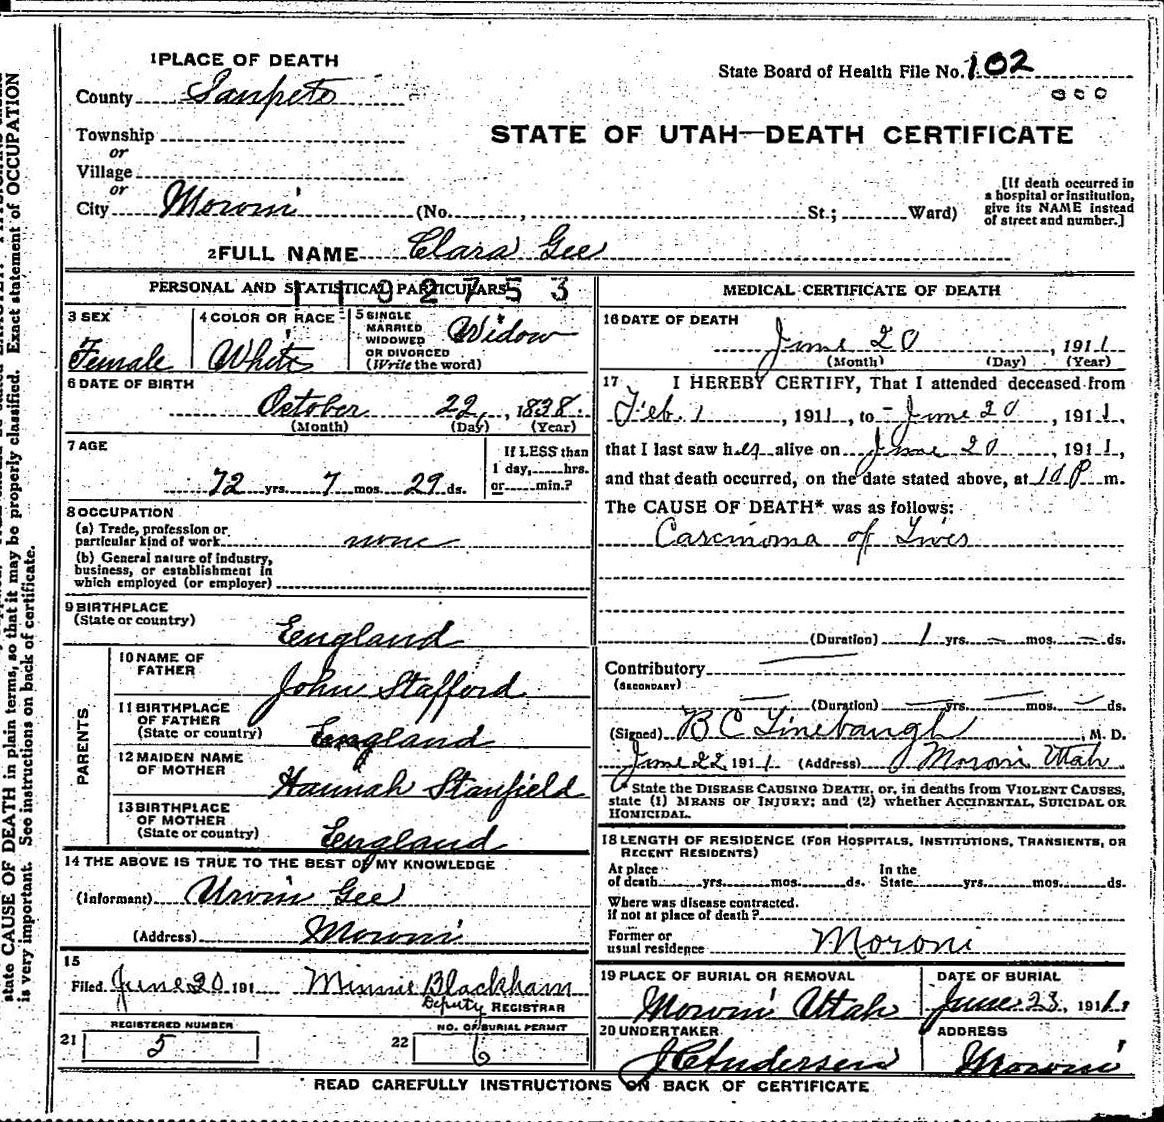 1 PLACE OF DEATH
State Board of Health File No. 102
County Sanpete
000
Township
STATE OF UTAH—DEATH CERTIFICATE
or
Village
or
City Moroni (No. , St.; Ward)
[If death occurred in
a hospital or institution,
give its NAME instead
of street and number.]
2 FULL NAME Clara Gee
PERSONAL AND STATISTICAL PARTICULARS
1192753
3 SEX
Female
4 COLOR OR RACE
White
5 SINGLE
MARRIED
WIDOWED
OR DIVORCED
(Write the word)
Widow
6 DATE OF BIRTH
October 22, , 1838.
(Month) (Day) (Year)
7 AGE
72 yrs. 7 mos. 29 ds.
If LESS than
1 day, hrs.
or min.?
8 OCCUPATION
(a) Trade, profession or
particular kind of work none
(b) General nature of industry,
business, or establishment in
which employed (or employer)
9 BIRTHPLACE
(State or country)
England
PARENTS
10 NAME OF
FATHER
John Stafford
11 BIRTHPLACE
OF FATHER
(State or country)
England
12 MAIDEN NAME
OF MOTHER
Hannah Stanfield
13 BIRTHPLACE
OF MOTHER
(State or country)
England
14 THE ABOVE IS TRUE TO THE BEST OF MY KNOWLEDGE
(Informant) Urvin Gee
(Address) Moroni
15
Filed June 20 191 Minnie Blackham
Deputy REGISTRAR
21 REGISTERED NUMBER
5
22 NO. OF BURIAL PERMIT
6
MEDICAL CERTIFICATE OF DEATH
16 DATE OF DEATH
June 20 , 1911
(Month) (Day) (Year)
17 I HEREBY CERTIFY, That I attended deceased from
Feb. 1 , 1911, to June 20 , 1911,
that I last saw her alive on June 20 , 1911,
and that death occurred, on the date stated above, at 10 P m.
The CAUSE OF DEATH* was as follows:
Carcinoma of Liver
(Duration) 1 yrs. – mos. – ds.
Contributory —
(SECONDARY)
(Duration) — yrs. — mos. — ds.
(Signed) B C Linebaugh , M. D.
June 22 1911 (Address) Moroni Utah
* State the DISEASE CAUSING DEATH, or, in deaths from VIOLENT CAUSES,
state (1) MEANS OF INJURY; and (2) whether ACCIDENTAL, SUICIDAL OR
HOMICIDAL.
18 LENGTH OF RESIDENCE (FOR HOSPITALS, INSTITUTIONS, TRANSIENTS, OR
RECENT RESIDENTS)
At place
of death yrs. mos. ds.
In the
State yrs. mos. ds.
Where was disease contracted.
if not at place of death?
Former or
usual residence Moroni
19 PLACE OF BURIAL OR REMOVAL
Moroni Utah
DATE OF BURIAL
June 23, 1911
20 UNDERTAKER
J C Andersen
ADDRESS
Moroni
READ CAREFULLY INSTRUCTIONS ON BACK OF CERTIFICATE
state CAUSE OF DEATH in plain terms, so that it may be properly classified. Exact statement of OCCUPATION
is very important. See instructions on back of certificate.